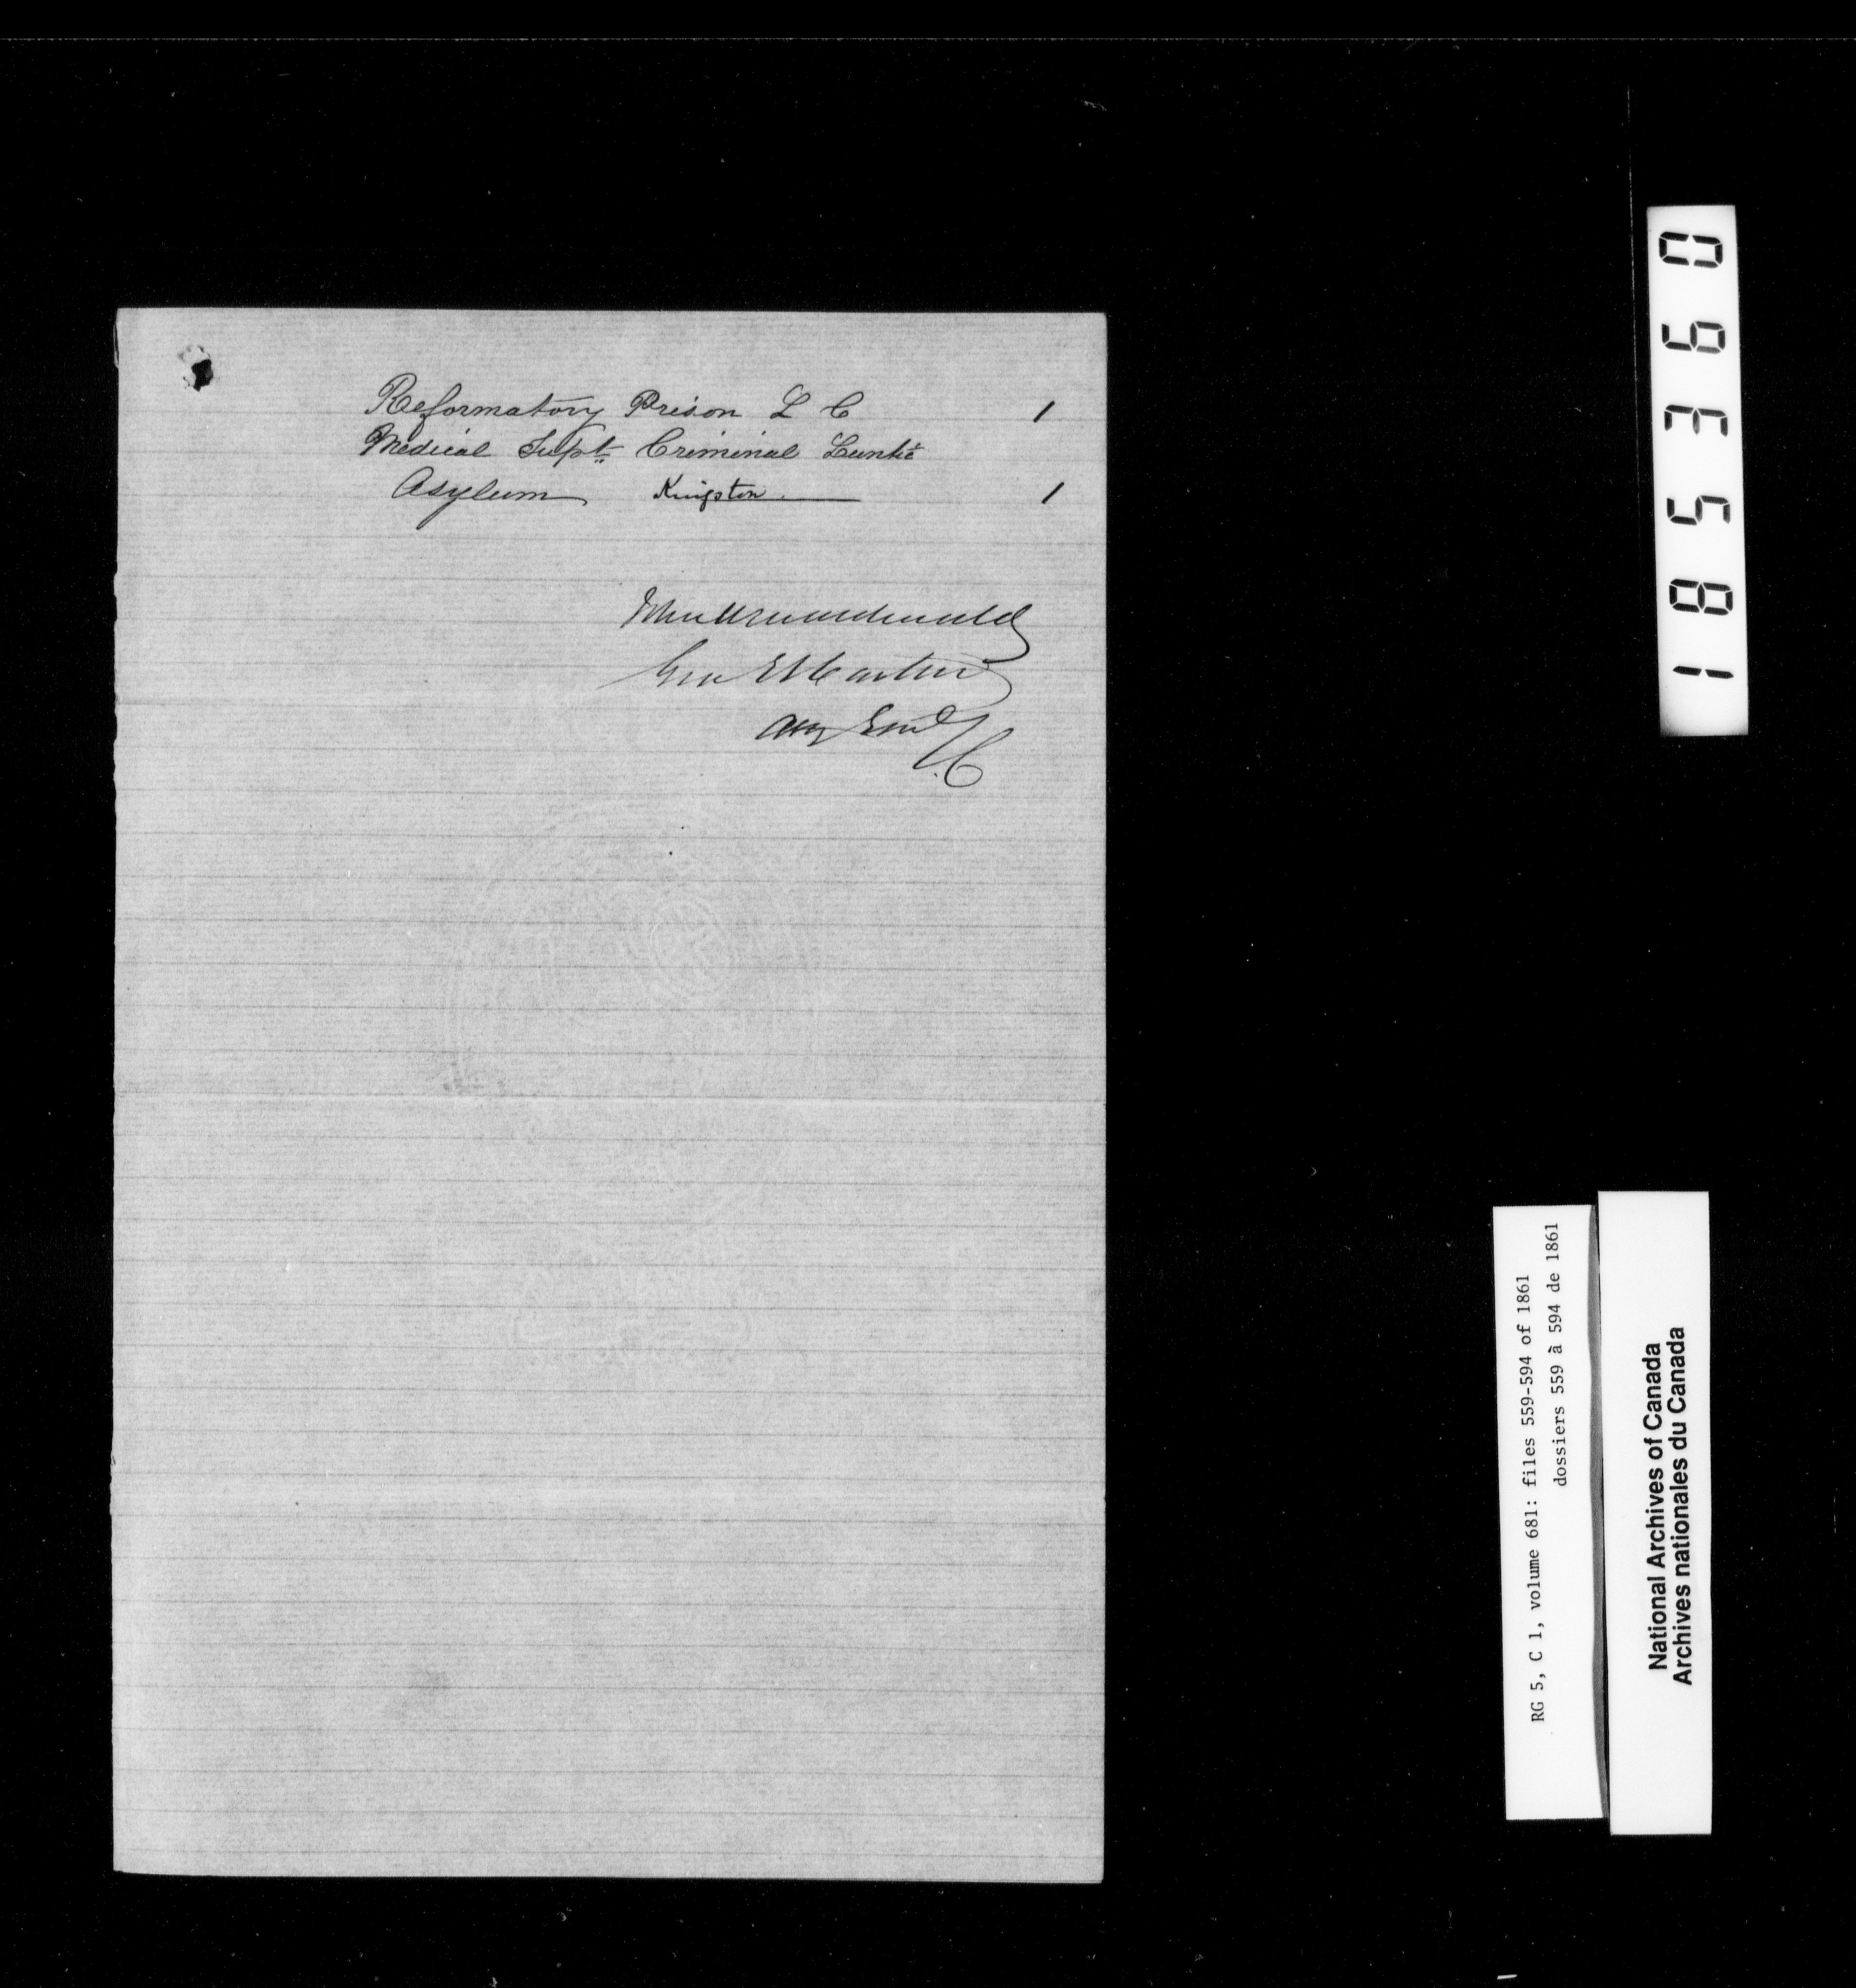 Reformatory Prison L C 1
Medical Supt. Criminal Luntic
Asylum Kingston 1
John A Macdonald
Geo E Cartier
Atty Genl
L.C
185360
RG 5, C 1, volume 681: files 559-594 of 1861
dossiers 559 à 594 de 1861
National Archives of Canada
Archives nationales du Canada